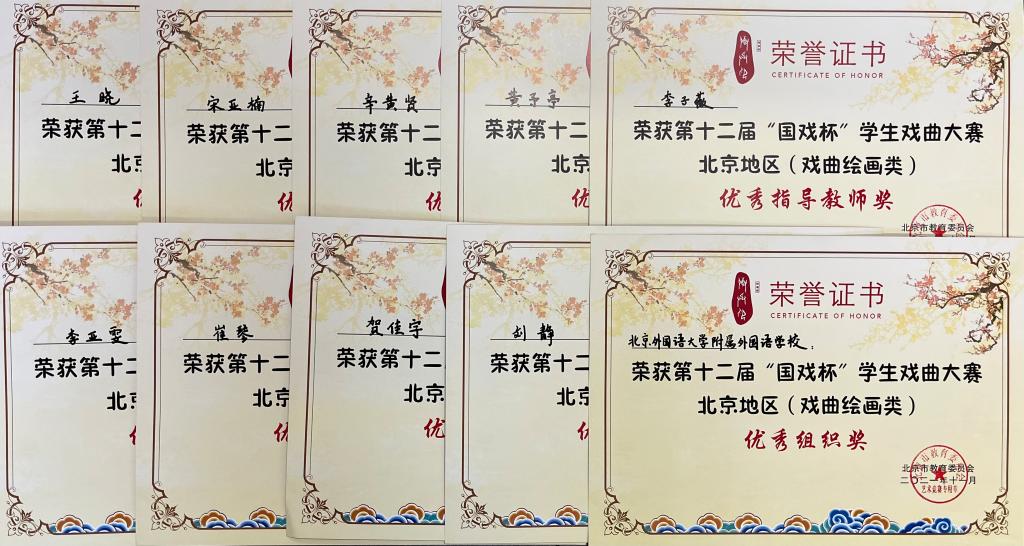 王晓
荣获第十二
北京
优
宋亚楠
荣获第十二
北京
优
辛黄贤
荣获第十二
北京
优
黄子亭
荣获第十二
北京
优
荣誉证书
CERTIFICATE OF HONOR
李子薇
荣获第十二届“国戏杯”学生戏曲大赛
北京地区（戏曲绘画类）
优秀指导教师奖
北京市教育委员会
李亚雯
荣获第十二
北京
优
崔琴
荣获第十二
北京
优
贺佳宇
荣获第十二
北京
优
刘静
荣获第十二
北京
优
荣誉证书
CERTIFICATE OF HONOR
北京外国语大学附属外国语学校：
荣获第十二届“国戏杯”学生戏曲大赛
北京地区（戏曲绘画类）
优秀组织奖
北京市教育委员会
二〇二一年十一月
艺术竞赛专用章